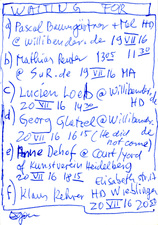 WAITING FOR
a) Pascal Baumgärtner + Mel HD
@ Willibender. de 19 VII 16
b) Mathias Reuter 13 05 11 30
@ S.o.R. de 19 VII 16 MA
c) Lucien Loeb @ Willibender,
20 VII 16 14 30 HD de
d) Georg Glatzel @ Willibender
20 VII 16 16 15 (He did de
not come)
e) Anne Dehof @ Court/yard
of Kunstverein Heidelberg
20 VII 16 18 15
f) Klaus HD Wieblingen
20 VII 16